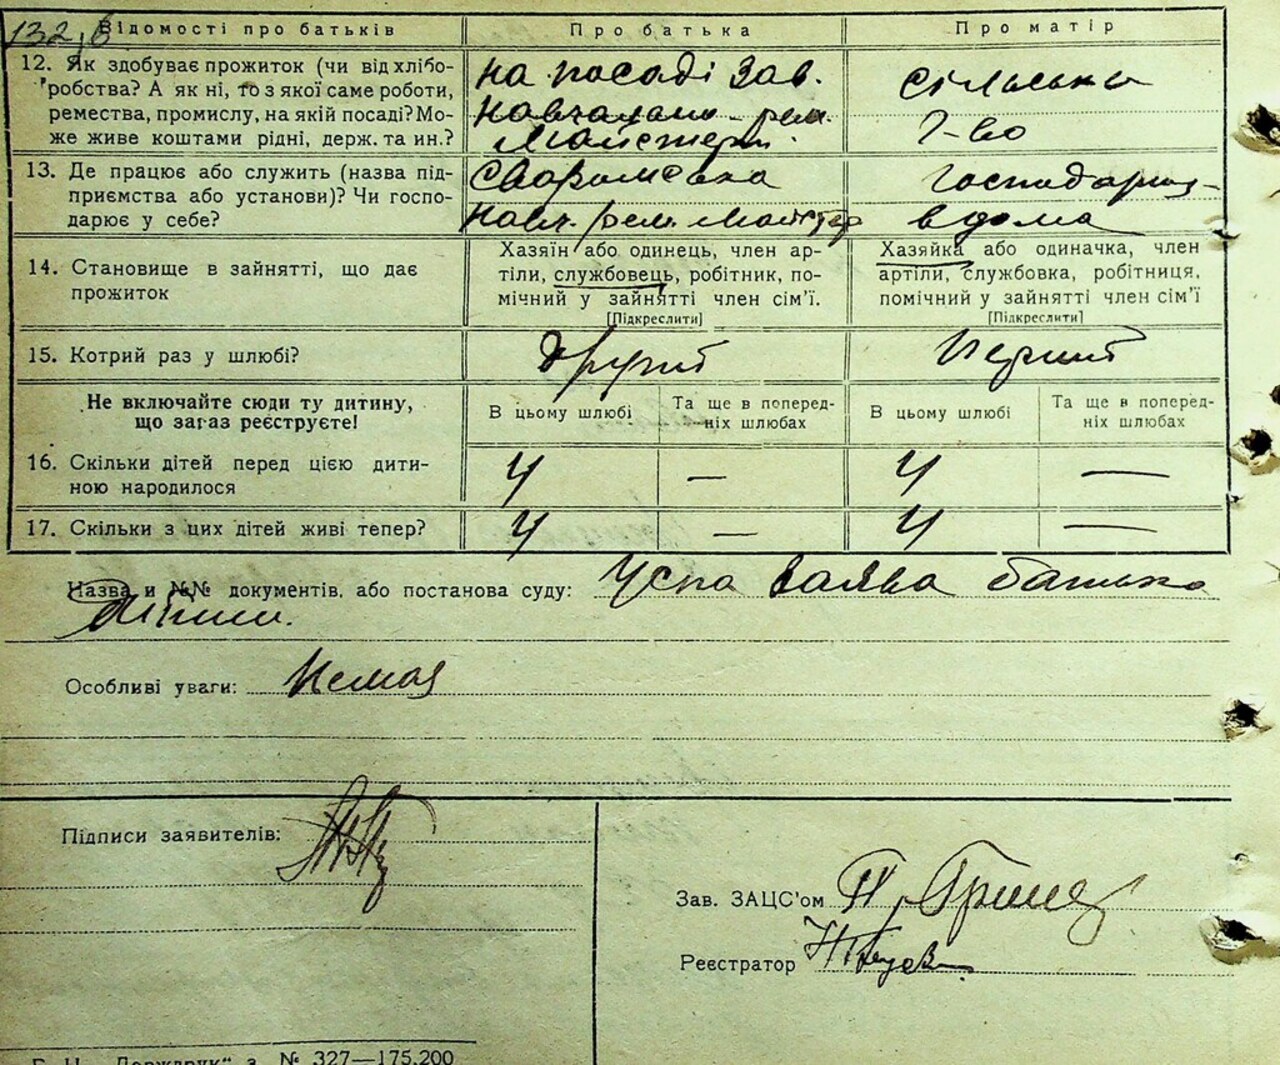 132, б
Відомості про батьків
Про батька
Про матір
12. Як здобуває прожиток (чи від хлібо-
робства? А як ні, то з якої саме роботи,
ремества, промислу, на якій посаді? Мо-
же живе коштами рідні, держ. та ин.?
на посаді Зав.
Навчальної рем.
Майстерні.
сільське
г-во
13. Де працює або служить (назва під-
приємства або установи)? Чи госпо-
дарює у себе?
Сваромська
Навч. рем. Майстер
господарює
вдома
14. Становище в зайнятті, що дає
прожиток
Хазяїн або одинець, член ар-
тіли, службовець, робітник, по-
мічний у зайнятті член сім'ї.
[Підкреслити]
Хазяйка або одиначка, член
артіли, службовка, робітниця,
помічний у зайнятті член сім'ї
[Підкреслити]
15. Котрий раз у шлюбі?
другий
Перший
Не включайте сюди ту дитину,
що зараз реєструєте!
В цьому шлюбі
Та ще в поперед-
ніх шлюбах
В цьому шлюбі
Та ще в поперед-
ніх шлюбах
16. Скільки дітей перед цією дити-
ною народилося
4 — 4 —
17. Скільки з цих дітей живі тепер?
4 — 4 —
Назва и №№ документів, або постанова суду: Усна заява батька
дитини.
Особливі уваги: Немає
Підписи заявителів:
Зав. ЗАЦС'ом
Реєстратор
Держдрук" з. № 327—175.200